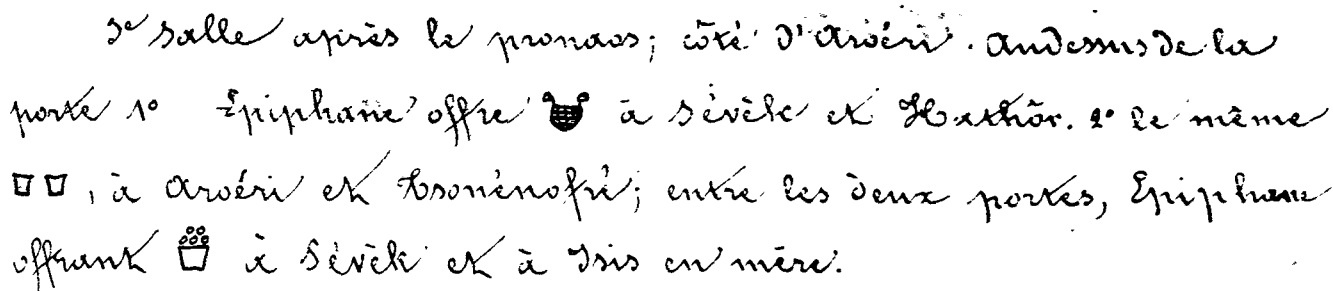 3e Salle après le pronaos; côté d'Aroéri. Audessus de la
porte 1º Epiphane offre à Sévèk et Hathôr. 2º le même
, à Aroéri et Tsonénofré; entre les deux portes, Epiphane
offrant à Sévèk et à Isis en mère.